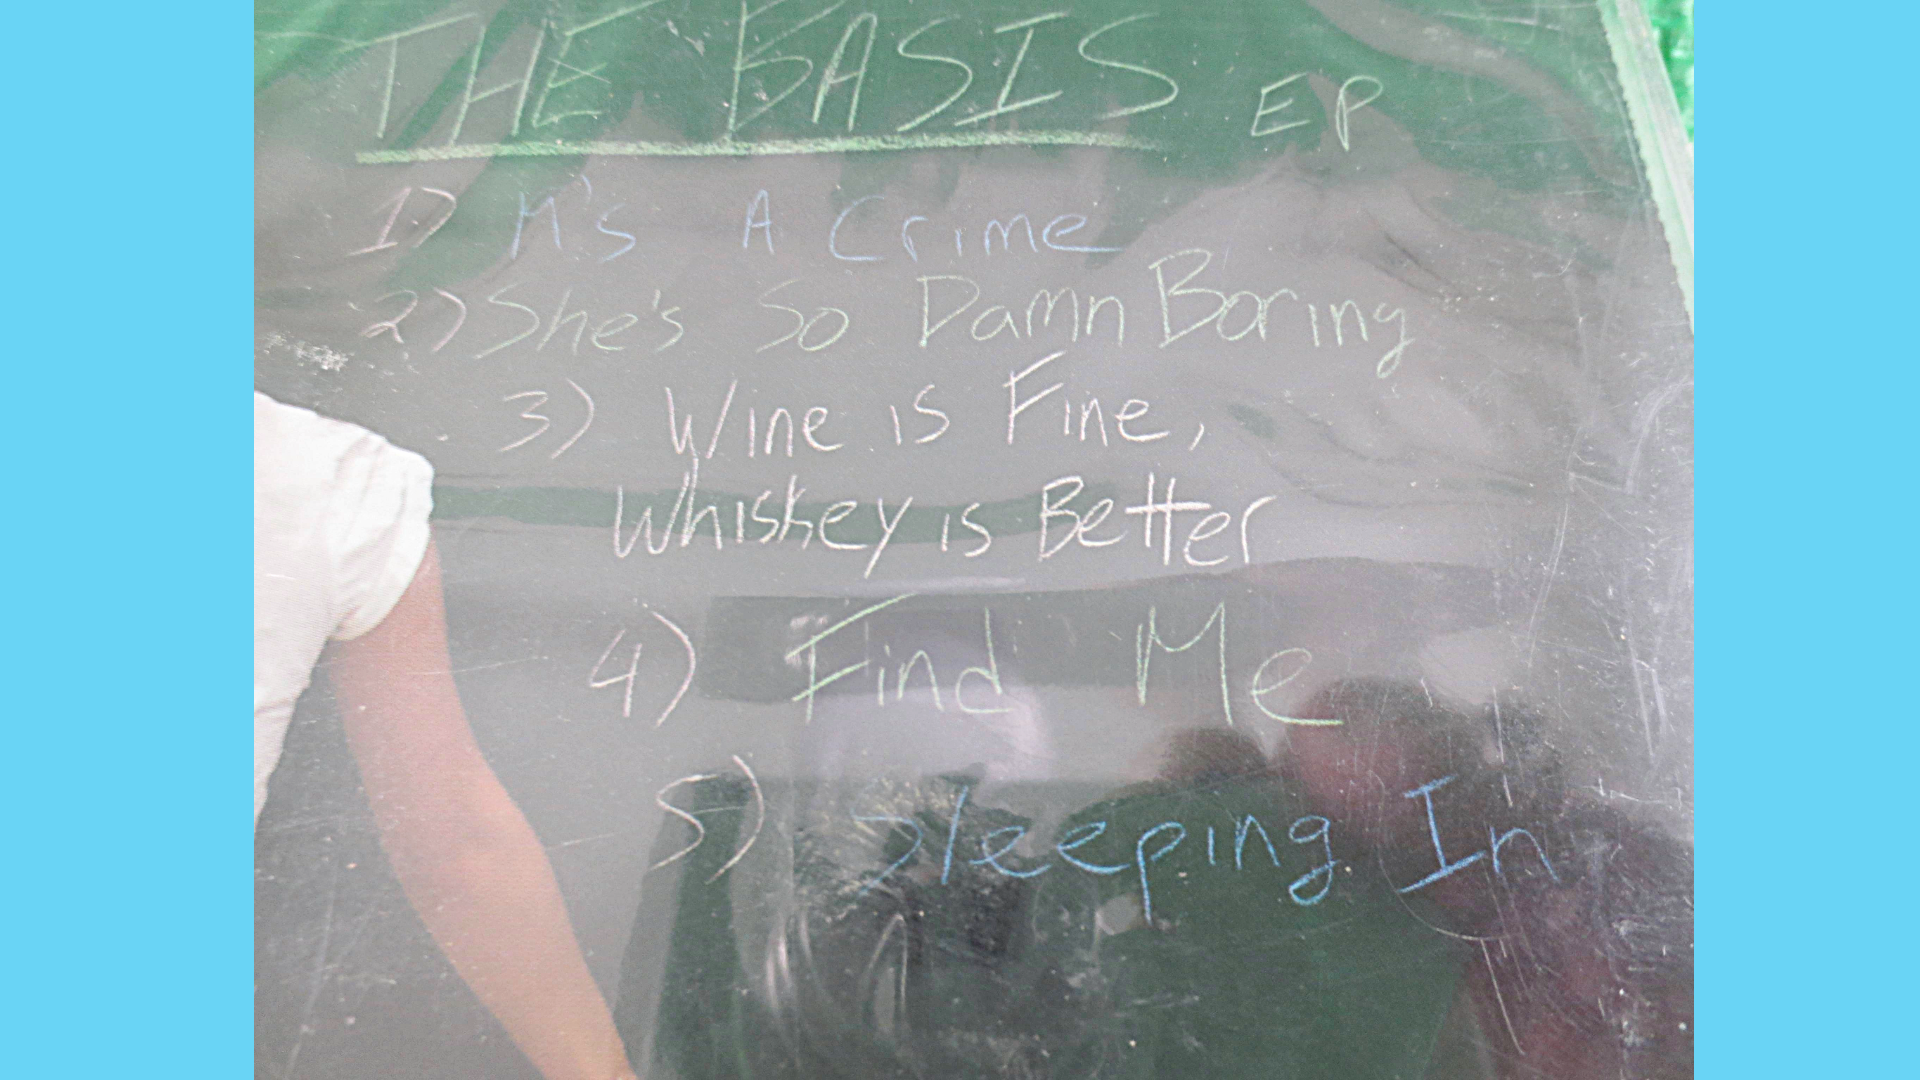 THE BASIS EP
1) M's A Crime
2) She's So Damn Boring
3) Wine is Fine,
Whiskey is Better
4) Find Me
5) Sleeping In